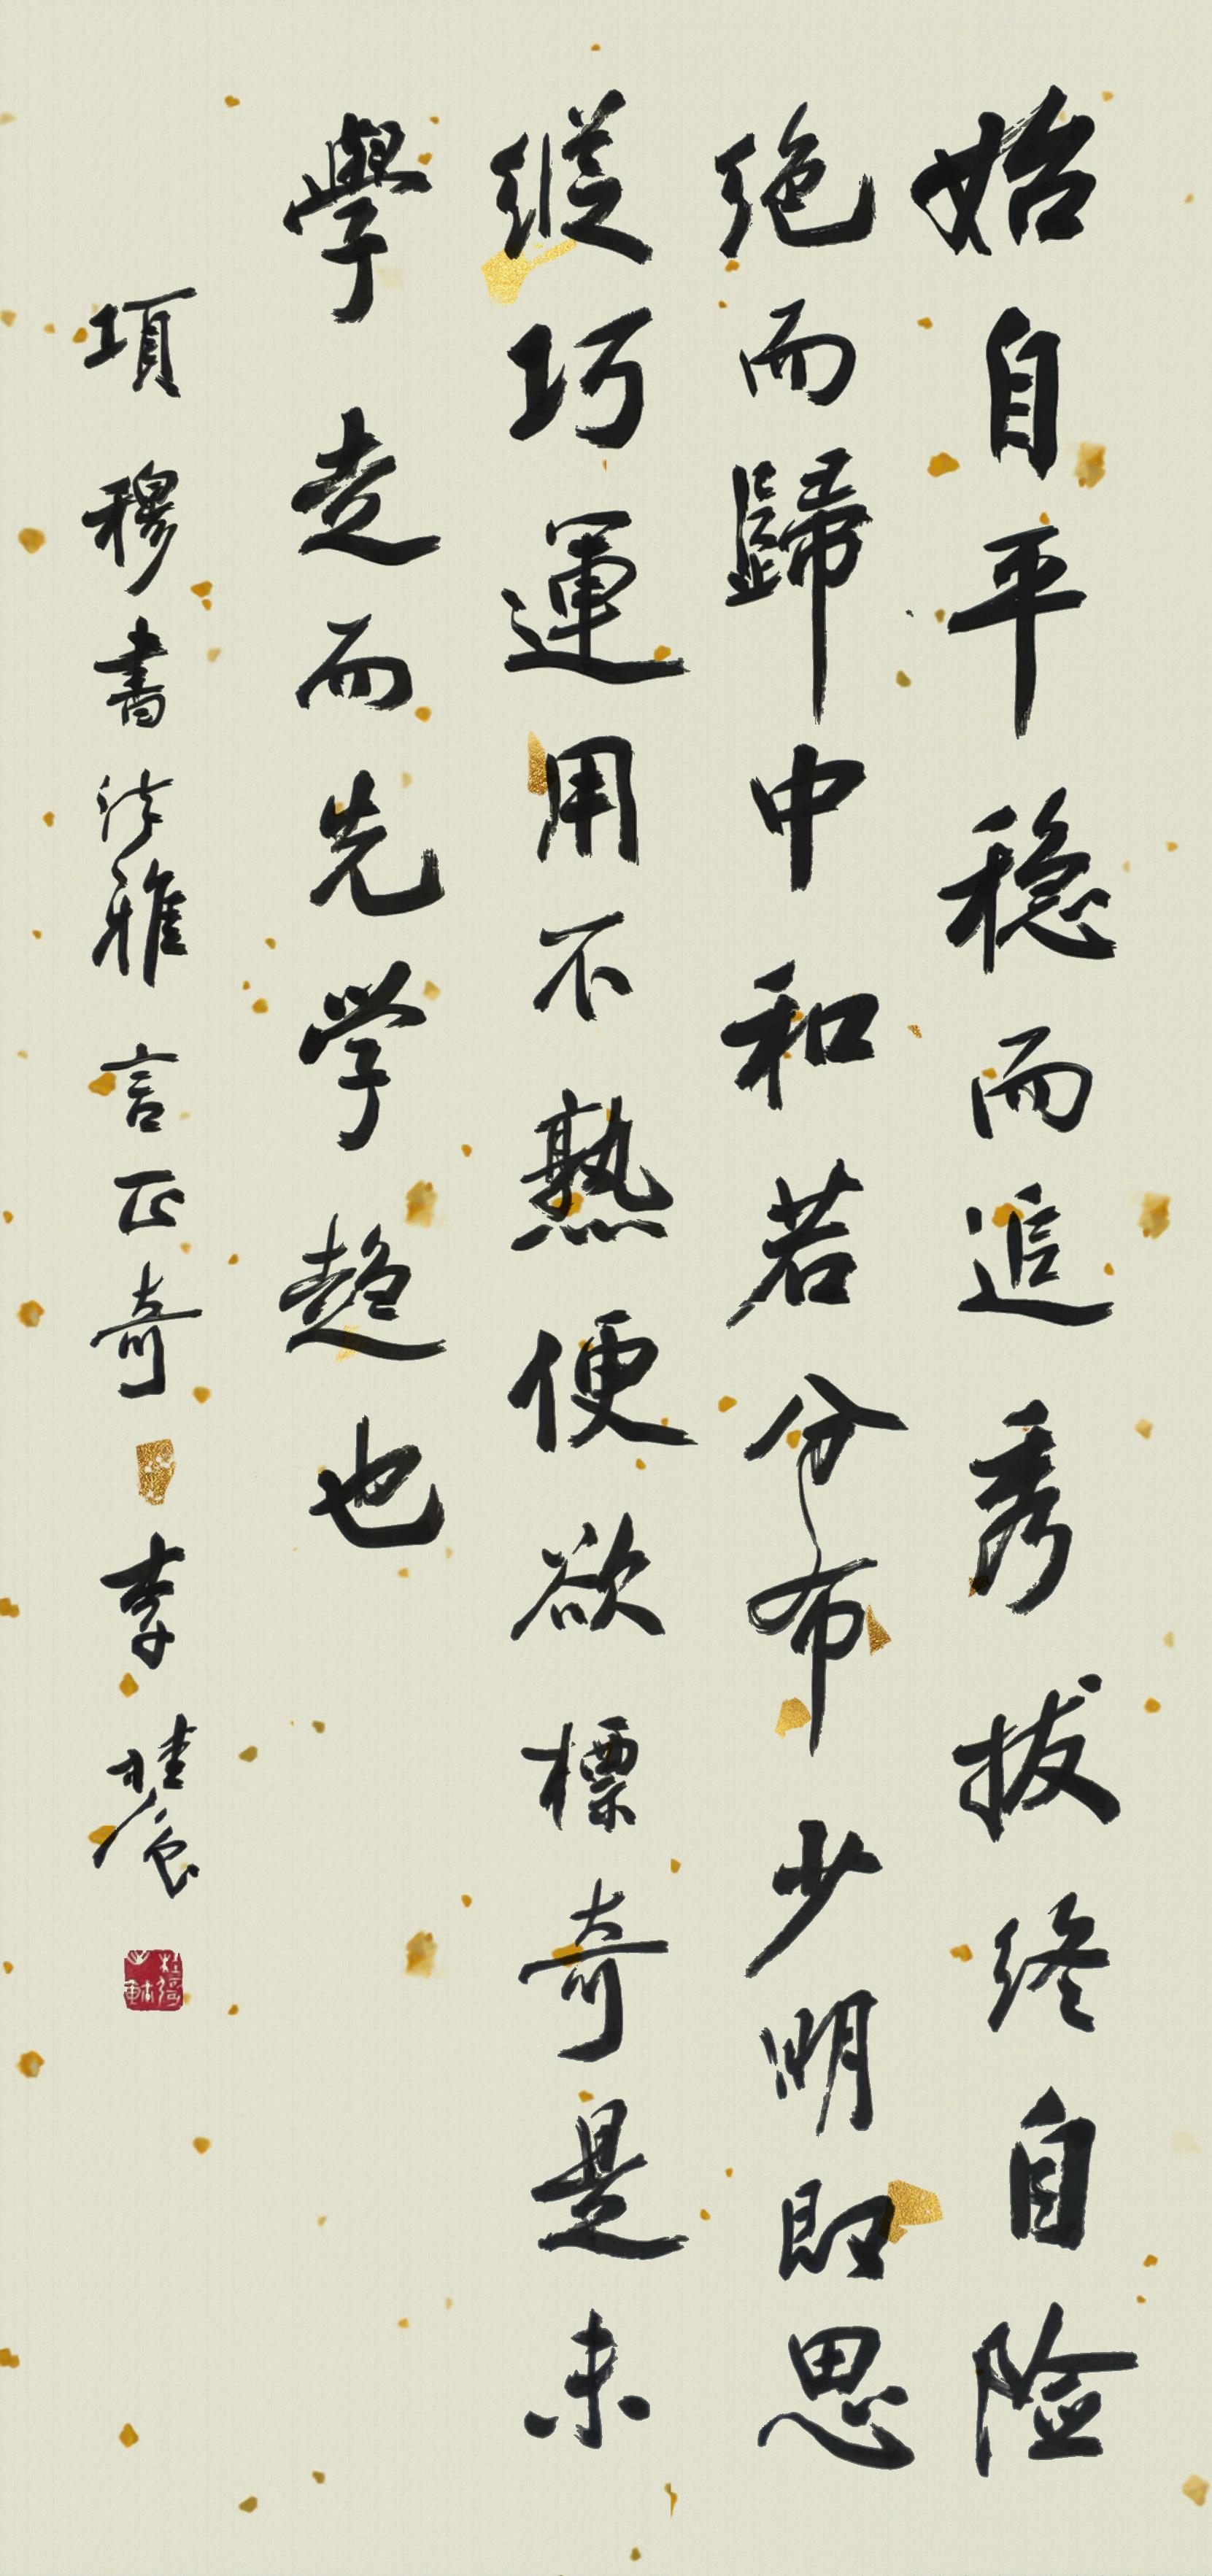 始自平穩而追秀拔終自险
绝而歸中和若分布少明即思
縱巧運用不熟便欲標奇是未
學走而先学趋也
項穆書法雅言正奇 李桂